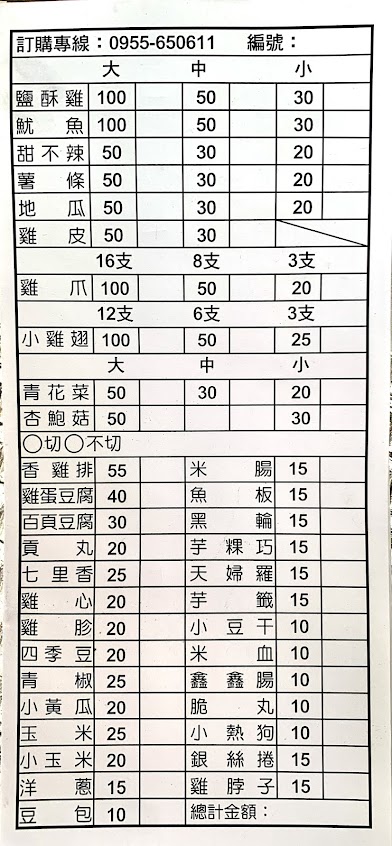 訂購專線：0955-650611 編號：
大 中 小
鹽酥雞 100 50 30
魷魚 100 50 30
甜不辣 50 30 20
薯條 50 30 20
地瓜 50 30 20
雞皮 50 30
16支 8支 3支
雞爪 100 50 20
12支 6支 3支
小雞翅 100 50 25
大 中 小
青花菜 50 30 20
杏鮑菇 50 30
○切○不切
香雞排 55 米腸 15
雞蛋豆腐 40 魚板 15
百頁豆腐 30 黑輪 15
貢丸 20 芋粿巧 15
七里香 25 天婦羅 15
雞心 20 芋籤 15
雞胗 20 小豆干 10
四季豆 20 米血 10
青椒 25 鑫鑫腸 10
小黃瓜 20 脆丸 10
玉米 25 小熱狗 10
小玉米 20 銀絲捲 15
洋蔥 15 雞脖子 15
豆包 10 總計金額：